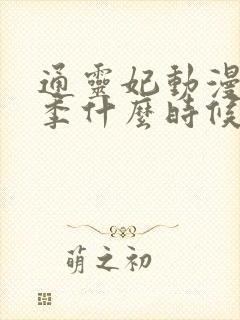 通靈妃動漫
季什麼時候
萌之初